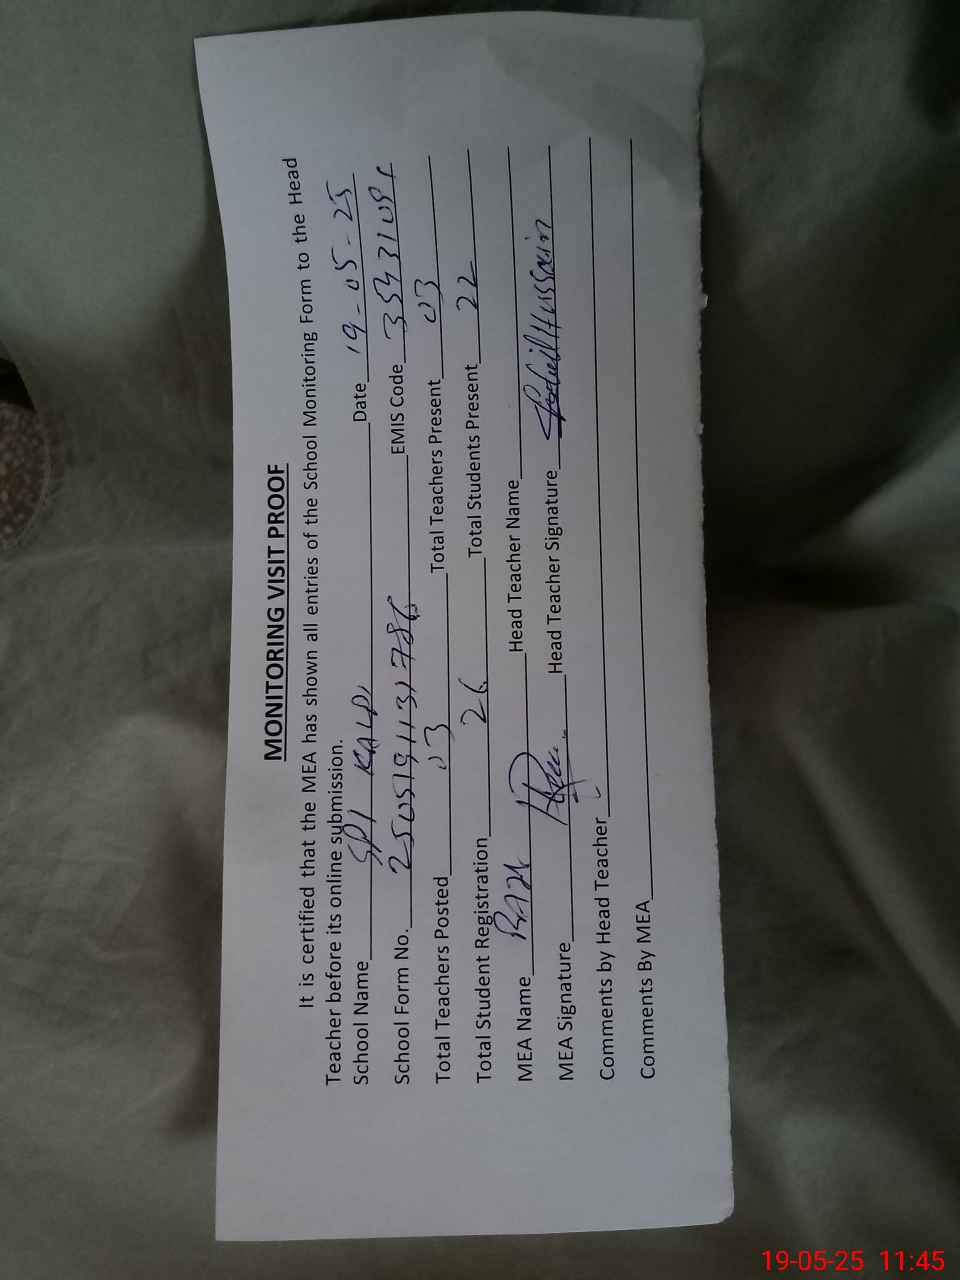 MONITORING VISIT PROOF
It is certified that the MEA has shown all entries of the School Monitoring Form to the Head
Teacher before its online submission.
School Name Date 19-05-25
School Form No. EMIS Code
Total Teachers Posted 03 Total Teachers Present 03
Total Student Registration 26 Total Students Present 22
MEA Name Head Teacher Name
MEA Signature Head Teacher Signature Hussain
Comments by Head Teacher
Comments By MEA
19-05-25 11:45